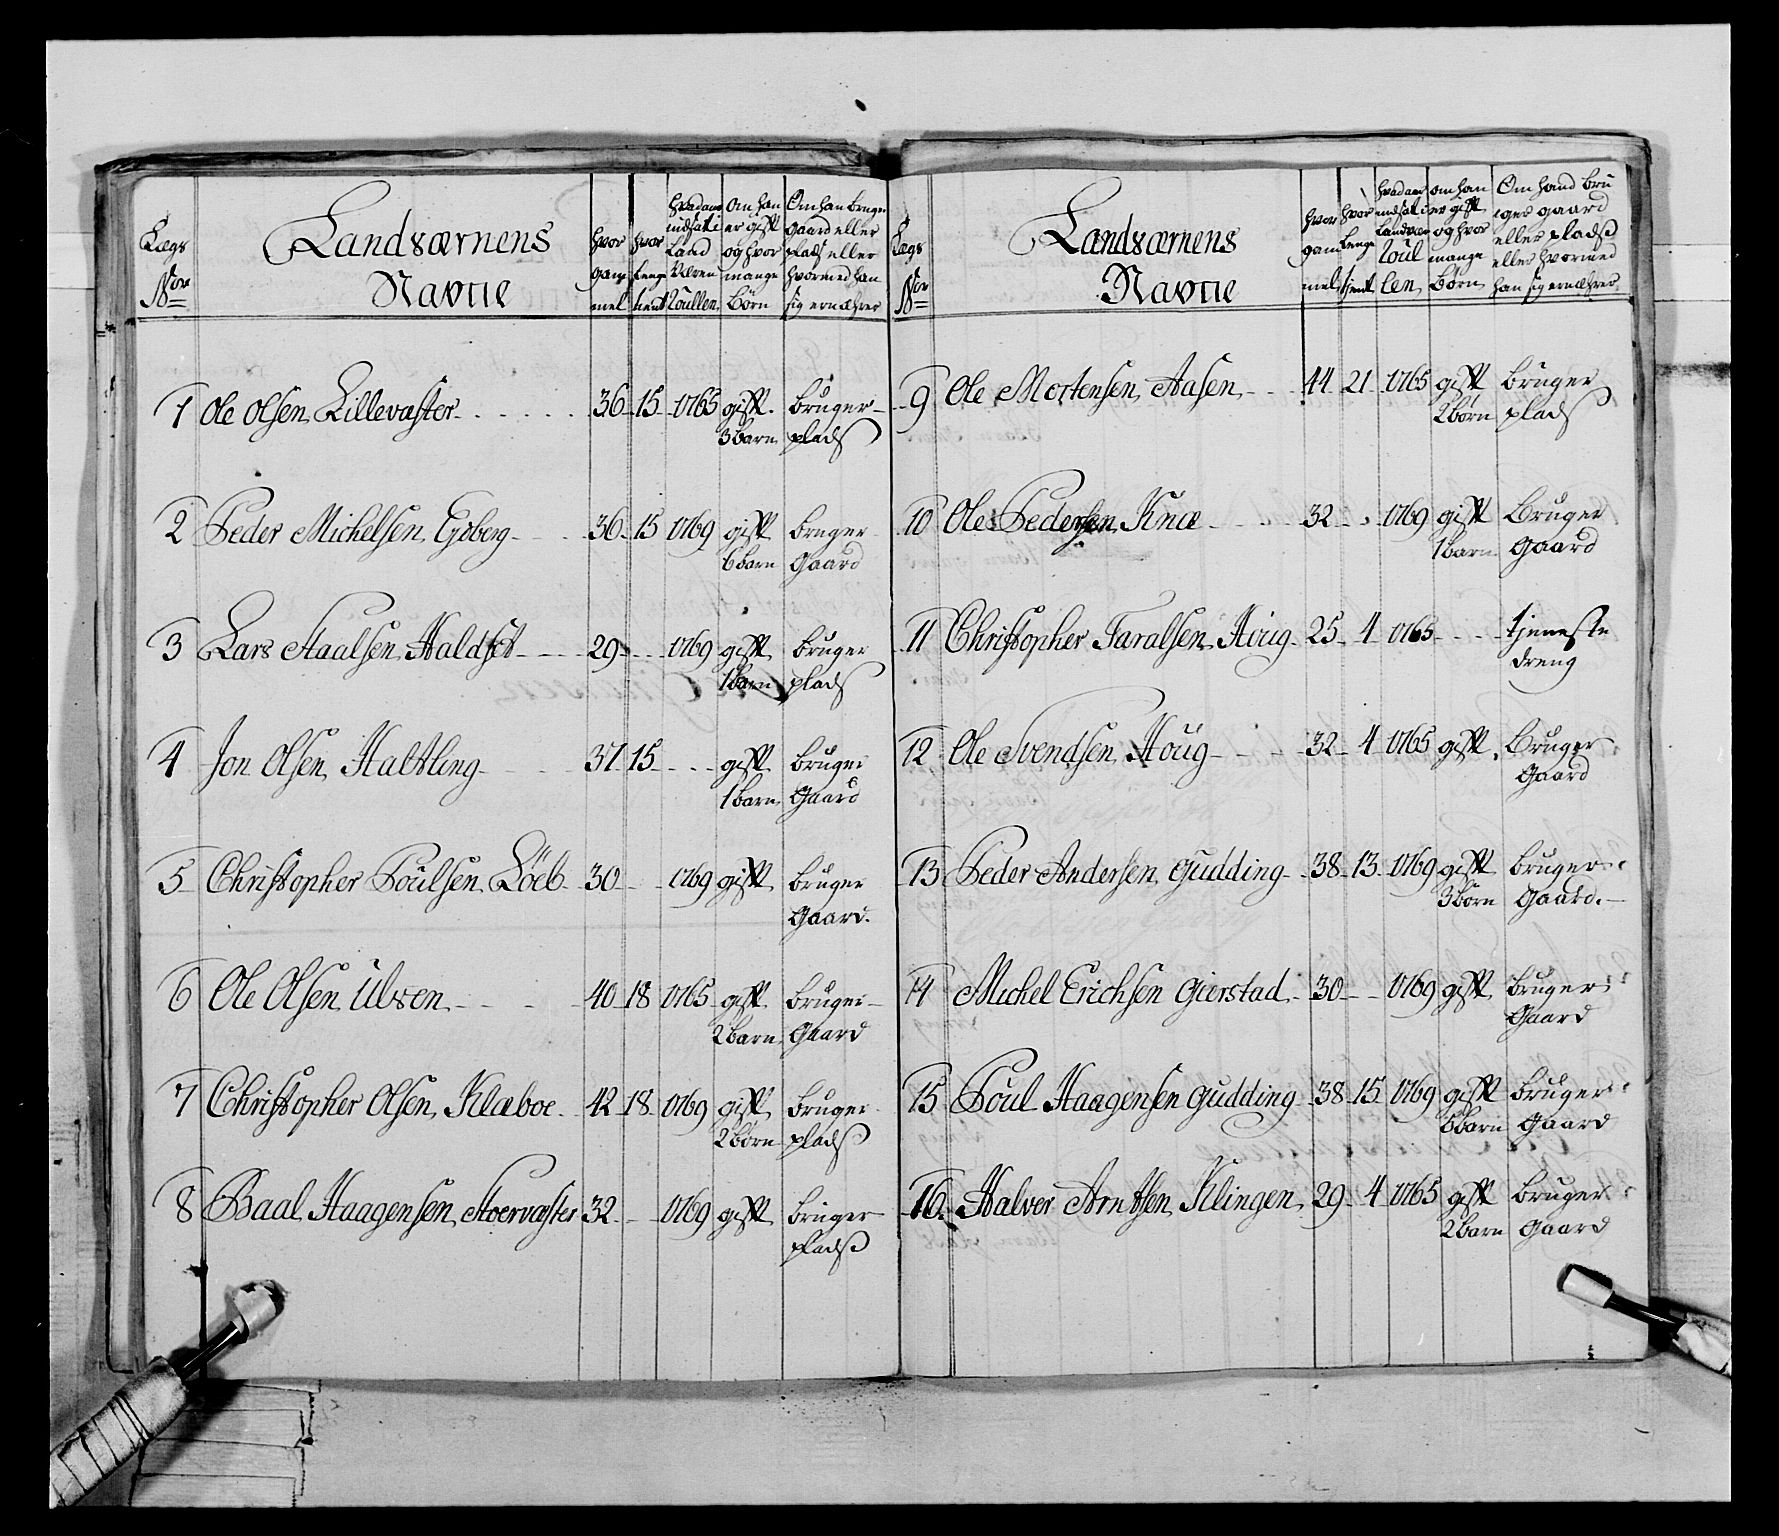 Lægs
Nor
Landværnens
Navne
hvor
gam
mel
hvor
lenge
tient
hvad aar
indsat i
Land
Væren
Roullen
Om han
er gift
og hvor
mange
Børn
Om han bruger
gaard eller
plads eller
hvormed han
sig ernæhrer
1 Ole Olsen Lillevæster 36 15 1765 gift bruger
3 barn plads
2 Peder Michelsen Egberg 36 15 1769 gift bruger
6 barn Gaard
3 Lars Staalsen Haldset 29 1769 gift bruger
1 barn plads
4 Jon Olsen Haltling 37 15 gift bruger
1 barn Gaard
5 Christopher Poulsen Löeb 30 1769 gift bruger
Gaard.
6 Ole Olsen Ulvsen 40 18 1765 gift bruger
2 barn Gaard
7 Christopher Olsen Klæboe 42 18 1769 gift bruger
2 børn plads
8 Haagensen Stoervæster 32 1769 gift bruger
plads
Lægs
Nor
Landværnens
Navne
hvor
gam
mel
hvor
lenge
tient
hvad aar
indsat i
Landvær
Roul
len
om han
er gift
og hvor
mange
Børn
Om hand bru
ger gaard
eller plads
eller hvormed
han sig ernæhrer
9 Ole Mortensen Aasen 44 21 1765 gift bruger
2 børn plads
10 Ole Pedersen Knæ 32 1769 gift Bruger
1 barn Gaard
11 Christopher Taralsen Houg 25 4 1765 tjeneste
dreng
12 Ole Svendsen Houg 32 4 1765 gift Bruger
Gaard
13 Peder Andersen Gudding 38 13 1769 gift bruger
3 børn Gaard.
14 Michel Erichsen Gierstad 30 1769 gift bruger
Gaard
15 Poul Haagensen Gudding 38 15 1769 gift bruger
barn Gaard
16. Halver Arntsen Klingen 29 4 1765 gift bruger
2 barn Gaard